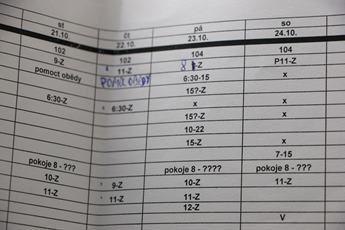 st čt pá so
21.10. 22.10. 23.10. 24.10.
102 102 104 104
9-Z 11-Z 8-Z P11-Z
pomoct obědy POMOC OBĚDY 6:30-15 x
15?-Z x
6:30-Z 6:30-Z x x
15?-Z x
10-22
15-Z x
7-15
pokoje 8 - ??? pokoje 8 - ???? pokoje 8 - ???
10-Z 9-Z 10-Z 11-Z
11-Z 11-Z 11-Z
12-Z
V